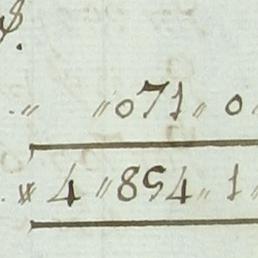 $.
" "071" 0
" 4 "854" 1 "